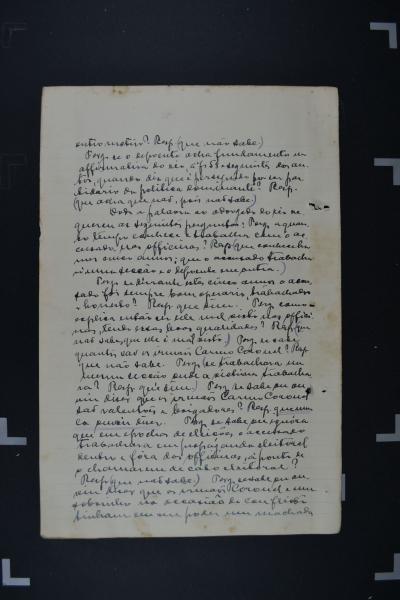 outro motivo? Resp. (que não sabe.)
Perg. se o depoente acha fundamento na
affirmativa do réo, á fls e seguintes dos au-
tos, quando diz que é perseguido por ser par-
tidario da politica dominante? Resp.
(que acha que não, pois não sabe.)
Dada a palavra ao advogado do réo re-
quereu as seguintes perguntas: Perg. a quan-
to tempo conhece e trabalha com o ac-
cusado, nas officinas? Resp. que conhece ha
uns cinco annos; que o accusado trabalha
n'uma secção e o depoente em outra.)
Perg. se durante estes cinco annos o accu-
sado foi sempre bom operario, trabalhador
e honesto? Resp. que sim. Perg. como
explica então ser elle mal visto nas offici-
nas, tendo essas boas qualidades? Resp. (que
não sabe, que elle é mal visto.) Perg. se sabe
quantos são os irmãos Carmo Coronel? Resp.
que não sabe. Perg. se trabalhava na
mesma secção onde a victima trabalha-
va? Resp. que sim.) Perg. se sabe ou ou-
viu dizer que os irmãos Carmo Coronel
são valentões e brigadores? Resp. que nun-
ca ouviu dizer. Perg. se sabe ou ignora
que em epochas de eleições, o accusado
trabalhava em propaganda eleitoral
dentro e fóra das officinas, a ponto de
o chamarem de cabo eleitoral?
Resp. (que não sabe.) Perg. se sabe ou ou-
viu dizer que os irmãos Coronel e um
sobrinho na occasião do conflicto
tinham em seu poder um machado